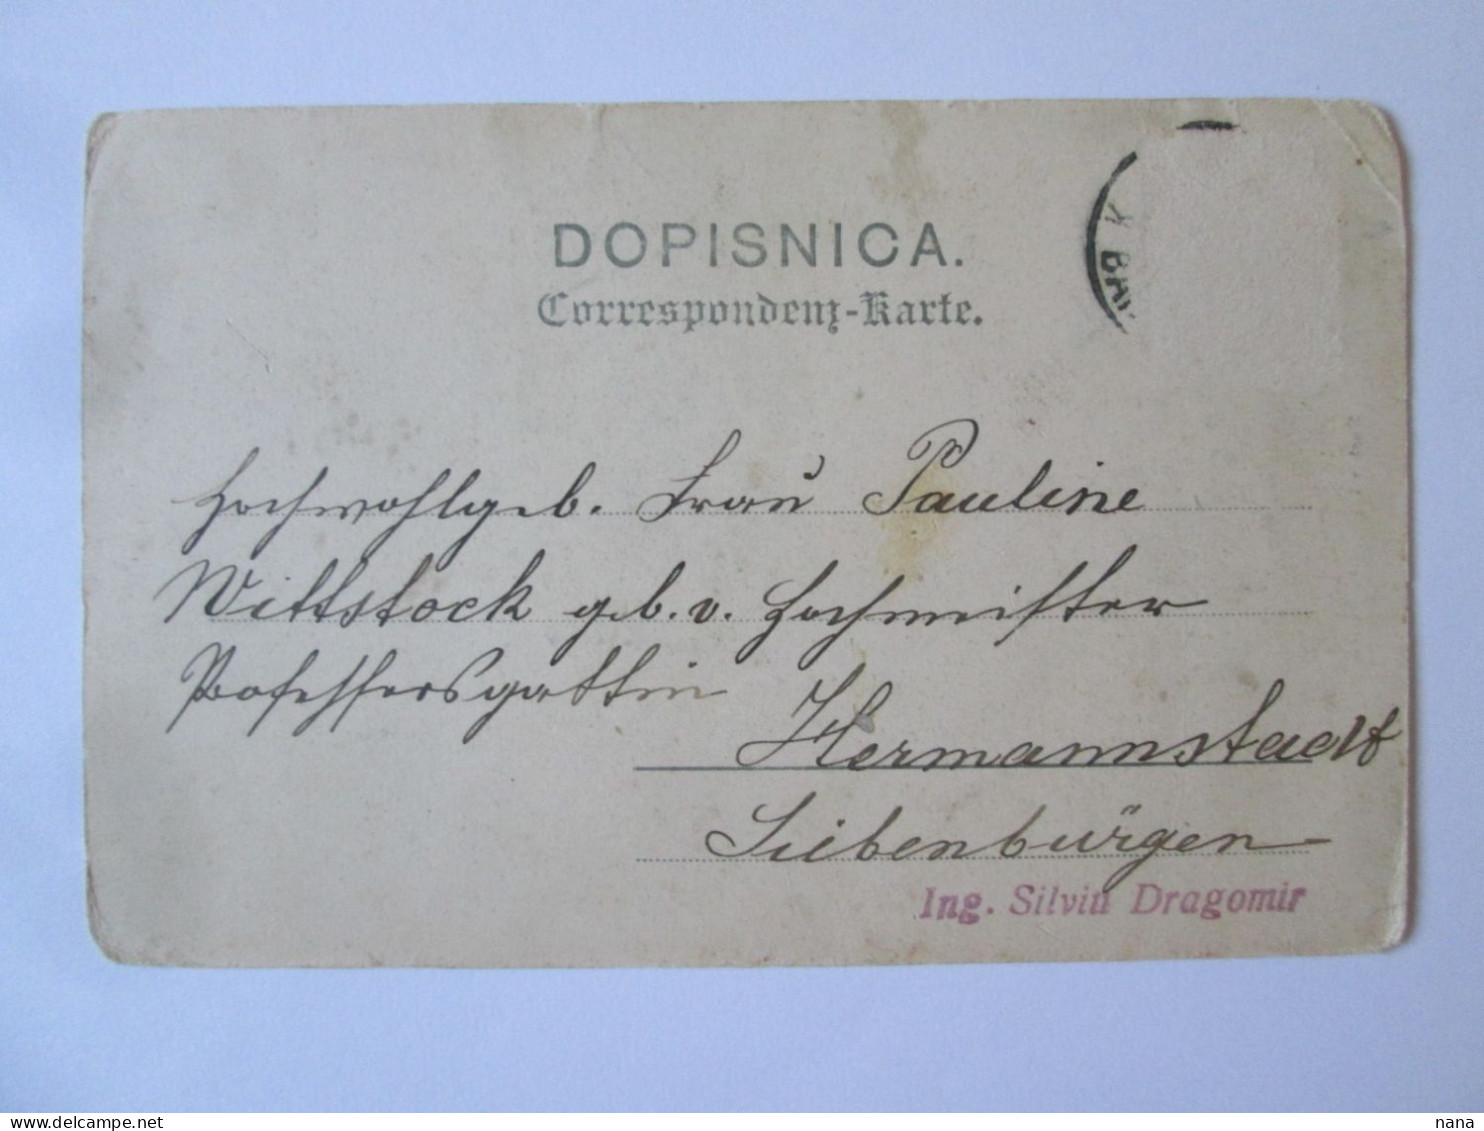 DOPISNICA.
Correspondenz-Karte.
K
Hochwohlgeb. Frau Pauline
Wittstock geb. v. Hochmeister
Professorsgattin
Hermannstadt
Siebenbürgen
Ing. Silviu Dragomir
nana